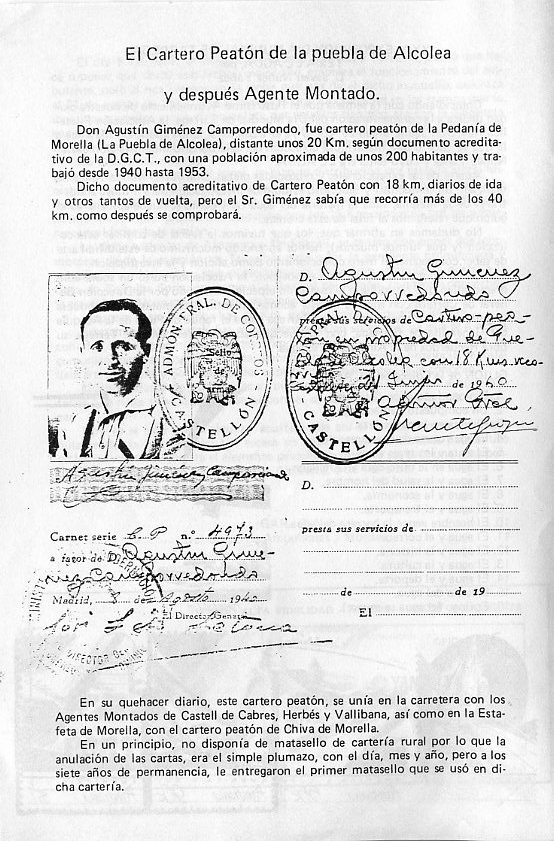 El Cartero Peatón de la puebla de Alcolea
y después Agente Montado.
Don Agustín Giménez Camporredondo, fue cartero peatón de la Pedanía de
Morella (La Puebla de Alcolea), distante unos 20 Km. según documento acredita-
tivo de la D.G.C.T., con una población aproximada de unos 200 habitantes y tra-
bajó desde 1940 hasta 1953.
Dicho documento acreditativo de Cartero Peatón con 18 km. diarios de ida
y otros tantos de vuelta, pero el Sr. Giménez sabía que recorría más de los 40
km. como después se comprobará.
ADMÓN. PRAL. DE CORREOS
CASTELLÓN
Sello
de
D. Agustín Gimenez
Camporredondo
presta sus servicios de Cartero-pea-
tón en propiedad de Pue-
bla de Alcolea con 18 Kms reco-
de 1940
CASTELLÓN
Agustín Giménez Camporredondo
Carnet serie C.P. n.º 4973
a favor de D. Agustín Gime-
nez Camporredondo
Madrid, de Agosto 1940
El Director General
DIRECTOR GENERAL
D.
presta sus servicios de
de de 19
El
En su quehacer diario, este cartero peatón, se unía en la carretera con los
Agentes Montados de Castell de Cabres, Herbés y Vallibana, así como en la Esta-
feta de Morella, con el cartero peatón de Chiva de Morella.
En un principio, no disponía de matasello de cartería rural por lo que la
anulación de las cartas, era el simple plumazo, con el día, mes y año, pero a los
siete años de permanencia, le entregaron el primer matasello que se usó en di-
cha cartería.